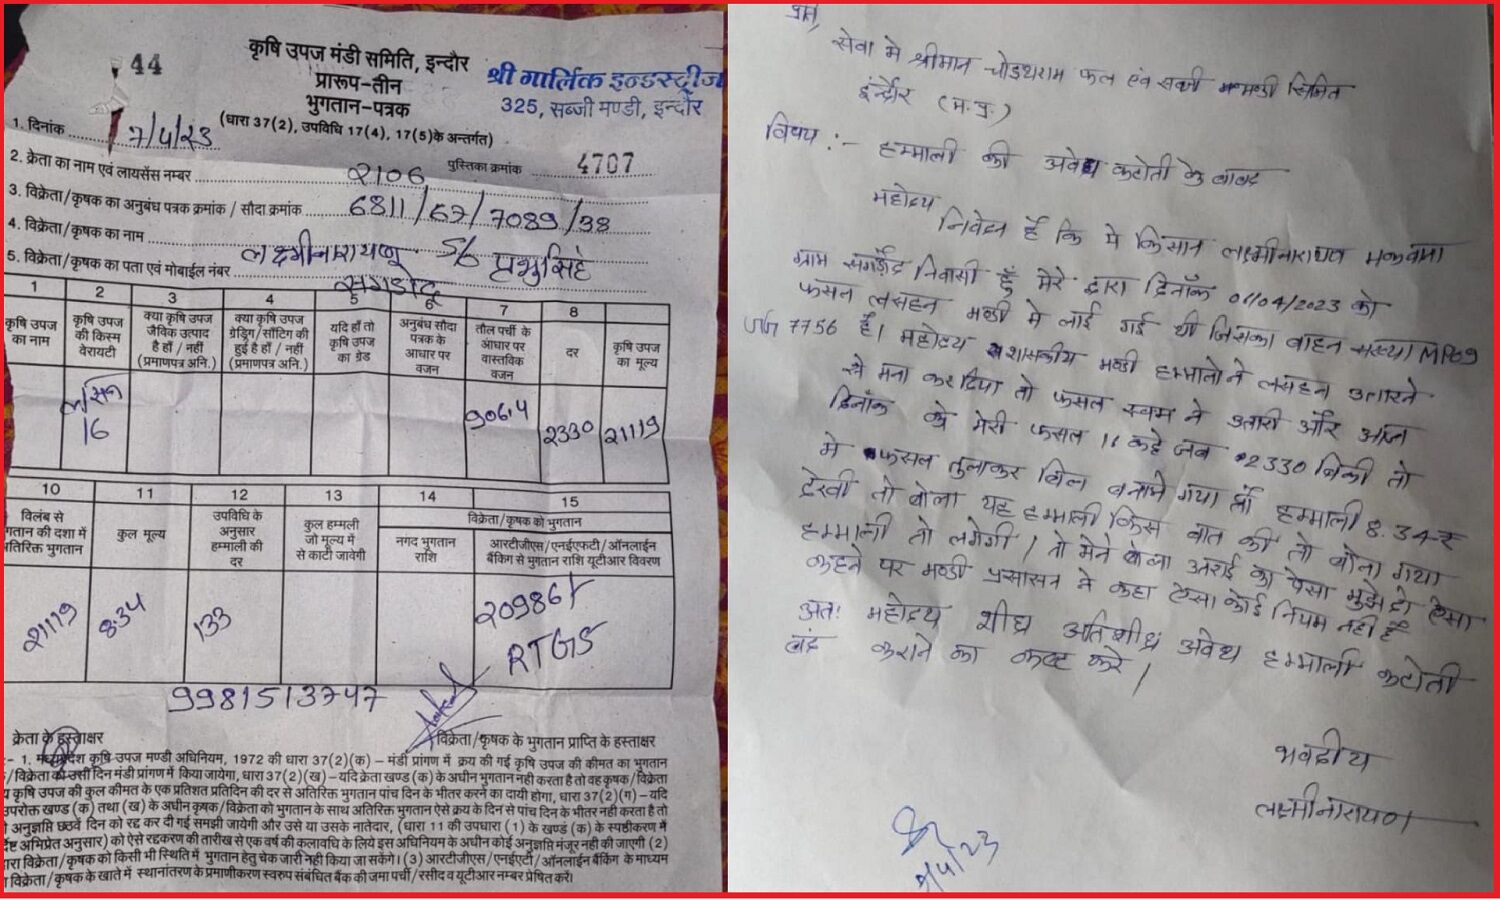 44
कृषि उपज मंडी समिति, इन्दौर
प्रारूप-तीन
भुगतान-पत्रक
(धारा 37(2), उपविधि 17(4), 17(5)के अन्तर्गत)
श्री गार्लिक इन्डस्ट्रीज
325, सब्जी मण्डी, इन्दौर
1. दिनांक 7/4/23
पुस्तिका क्रमांक 4707
2. क्रेता का नाम एवं लायसेंस नम्बर 2106
3. विक्रेता/कृषक का अनुबंध पत्रक क्रमांक / सौदा क्रमांक 6811/67/7089/38
4. विक्रेता/कृषक का नाम लक्ष्मीनारायण S/o प्रभुसिंह
5. विक्रेता/कृषक का पता एवं मोबाईल नंबर
1 2 3 4 5 6 7 8
कृषि उपज का नाम
कृषि उपज की किस्म वेरायटी
क्या कृषि उपज जैविक उत्पाद है हाँ / नहीं (प्रमाणपत्र अनि.)
क्या कृषि उपज ग्रेडिंग/सॉटिंग की हुई है हाँ / नहीं (प्रमाणपत्र अनि.)
यदि हाँ तो कृषि उपज का ग्रेड
अनुबंध सौदा पत्रक के आधार पर वजन
तौल पर्ची के आधार पर वास्तविक वजन
दर
कृषि उपज का मूल्य
16
906.4
2330
21119
10 11 12 13 14 15
विलंब से
गतान की दशा में
तिरिक्त भुगतान
कुल मूल्य
उपविधि के अनुसार हम्माली की दर
कुल हम्मली जो मूल्य में से काटी जावेगी
विक्रेता/कृषक को भुगतान
नगद भुगतान राशि
आरटीजीएस/एनईएफटी/ऑनलाईन बैंकिंग से भुगतान राशि यूटीआर विवरण
21119
8.34
133
20986/
RTGS
9981513747
क्रेता के हस्ताक्षर
विक्रेता/कृषक के भुगतान प्राप्ति के हस्ताक्षर
:- 1. मध्यप्रदेश कृषि उपज मण्डी अधिनियम, 1972 की धारा 37(2)(क) – मंडी प्रांगण में क्रय की गई कृषि उपज की कीमत का भुगतान
/विक्रेता को उसी दिन मंडी प्रांगण में किया जायेगा, धारा 37(2)(ख) – यदि क्रेता खण्ड (क) के अधीन भुगतान नही करता है तो वह कृषक/विक्रेता
कृषि उपज की कुल कीमत के एक प्रतिशत प्रतिदिन की दर से अतिरिक्त भुगतान पांच दिन के भीतर करने का दायी होगा, धारा 37(2)(ग) – यदि
उपरोक्त खण्ड (क) तथा (ख) के अधीन कृषक/विक्रेता को भुगतान के साथ अतिरिक्त भुगतान ऐसे क्रय के दिन से पांच दिन के भीतर नही करता है तो
अनुज्ञप्ति छठवें दिन को रद्द कर दी गई समझी जायेगी और उसे या उसके नातेदार, (धारा 11 की उपधारा (1) के खण्ड (क) के स्पष्टीकरण में
अभिप्रेत अनुसार) को ऐसे रद्दकरण की तारीख से एक वर्ष की कलावधि के लिये इस अधिनियम के अधीन कोई अनुज्ञप्ति मंजूर नही की जाएगी (2)
विक्रेता/कृषक को किसी भी स्थिति में भुगतान हेतु चेक जारी नही किया जा सकेंगे। (3) आरटीजीएस/एनईएटी/ऑनलाईन बैंकिंग के माध्यम
विक्रेता/कृषक के खाते में स्थानांतरण के प्रमाणीकरण स्वरुप संबंधित बैंक की जमा पर्ची/रसीद व यूटीआर नम्बर प्रेषित करें।
प्रति,
सेवा मे श्रीमान चोइथराम फल एंव सब्जी मण्डी
इन्दौर (म.प्र.)
विषय :- हम्माली की अवेध कटोती के बाबद
महोदय
निवेदन हैं कि मे किसान लक्ष्मीनारायण मकवाना
ग्राम निवासी हूँ मेरे द्वारा दिनाँक 07/04/2023 को
फसल लसहन मण्डी मे लाई गई थी जिसका वाहन संख्या MP09
UG 7756 हैं। महोदय शासकीय मण्डी हम्मालो ने लसहन उतारने
से मना कर दिया तो फसल स्वम ने उतारी और आज
दिनाँक को मेरी फसल 16 कट्टे जब 2330 बिकी तो
मे फसल तुलाकर बिल बनाने गया तो हम्माली 8.34 रु
देखी तो बोला यह हम्माली किस बात की तो बोला गया
हम्माली तो लगेगी। तो मेने बोला उतराई का पैसा मुझे दो ऐसा
कहने पर मण्डी प्रसासन ने कहा ऐसा कोई नियम नही हैं
अतः महोदय शीघ्र अतिशीघ्र अवेध हम्माली कटोती
बंद कराने का कष्ट करे।
भवदीय
लक्ष्मीनारायण